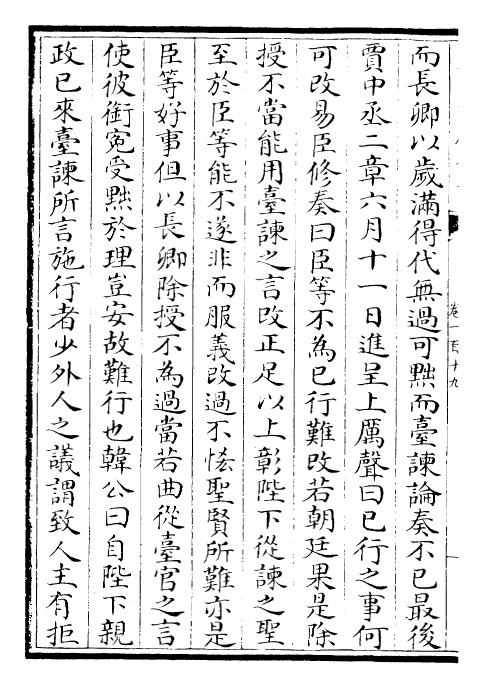 而長卿以歲滿得代無過可黜而臺諫論奏不已最後
賈中丞二章六月十一日進呈上厲聲曰已行之事何
可改易臣修奏曰臣等不為已行難改若朝廷果是除
授不當能用臺諫之言改正足以上彰陛下從諫之聖
至於臣等能不遂非而服義改過不恡聖賢所難亦是
臣等好事但以長卿除授不為過當若曲從臺官之言
使彼銜冤受黜於理豈安故難行也韓公曰自陛下親
政已來臺諫所言施行者少外人之議謂致人主有拒
卷一百十九